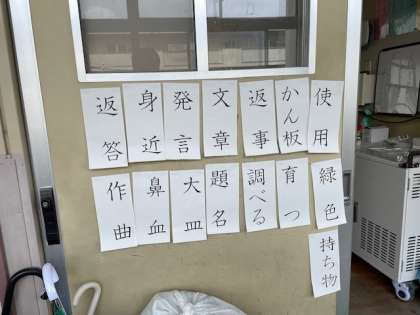 使用
かん板
返事
文章
発言
身近
返答
緑色
育つ
調べる
題名
大皿
鼻血
作曲
持ち物